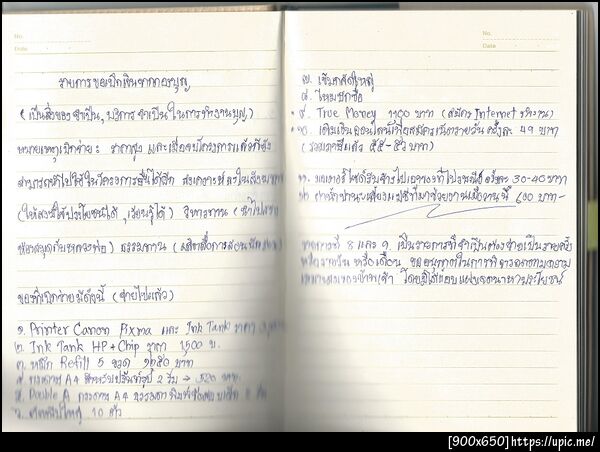 No.
Date
รายการขอเบิกเงินจากกองบุญ
( เป็นสิ่งของจำเป็น, บริการจำเป็นในการทำงานบุญ)
หมายเหตุเบิกจ่าย: ราคาสูง และเมื่อจบโครงการแล้วก็ยัง
สามารถนำไปใช้ในโครงการอื่นได้อีก
(ให้สิ่งนี้ใช้ประโยชน์ได้, เรียนรู้ได้) วิหารทาน
ห้องสมุด ธรรมทาน
ของที่เบิกจ่ายมีดังนี้ (จ่ายไปแล้ว)
๑. Printer Canon Pixma และ Ink Tank ราคา
๒. Ink Tank HP + Chip ราคา 1500 บ.
๓. หมึก Refill 5 ขวด ๑๒๕๐ บาท
๔ กระดาษ A4 สำหรับปริ้นท์รูป 2 รีม → 520 บาท.
๕. Double A กระดาษ A4 ธรรมดา
๖. 10 ตัว
No.
Date
๗. เข็มกลัดใหญ่
๘. ไหมปักชื่อ
๙. True Money 1100 บาท (สมัคร Internet รายวัน)
๑๐. เติมเงินออนไลน์เพื่อสมัครเน็ตรายวัน ครั้งละ 49 บาท
(รวมภาษีแล้ว ๕๕-๕๖ บาท)
๑๑. มอเตอร์ไซค์รับจ้างไป ครั้งละ 30-40 บาท
๑๒ 600 บาท-
รายการที่ 8 และ 9. เป็นรายการที่จำเป็นต้องจ่ายเป็นรายครั้ง
หรือรายวัน หรือเดือน ขออนุญาตในการพิจารณาตามความ
เหมาะสมของข้าพเจ้า โดยมิได้แอบแฝงเจตนาหาประโยชน์
[900x650] https://upic.me/